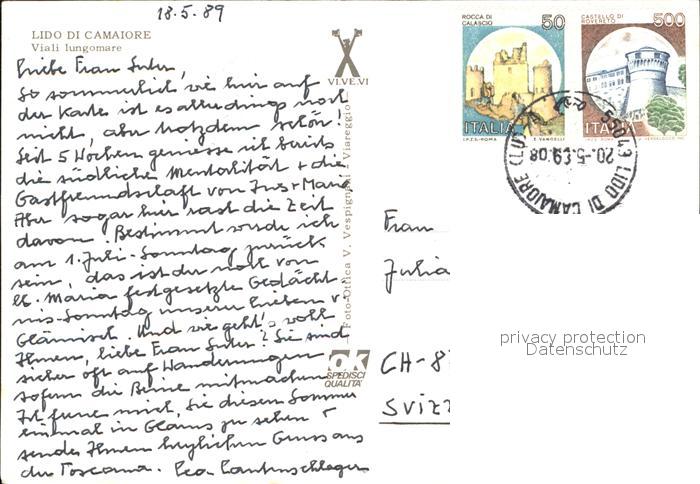 18.5.89
LIDO DI CAMAIORE
Viali lungomare
VI.VE.VI
Foto-Ottica V. Vespignani - Viareggio
Liebe Frau Suter,
So sommerlich wie hier auf
der Karte ist es allerdings noch
nicht, aber trotzdem schön!
Seit 5 Wochen geniesse ich bereits
die südliche Mentalität + die
Gastfreundschaft von +
Aber sogar hier rast die Zeit
davon. Bestimmt werde ich
am 1. Juli-Sonntag zurück
sein, das ist der noch von
Maria festgesetzte Gedächt
nis-Sonntag unserer lieben v
Glärnisch. Und wie geht's wohl
Ihnen, liebe Frau Suter? Sie sind
sicher oft auf Wanderungen
sofern die Beine mitmachen
Ich freue mich, Sie diesen Sommer
einmal in Glarus zu sehen +
sende Ihnen herzlichen Gruss aus
der Toscana.
ROCCA DI
CALASCIO
50
ITALIA
I.P.Z.S.-ROMA E. VANGELLI
CASTELLO DI
ROVERETO
500
ITALIA
I.P.Z.S.-ROMA
55043 LIDO DI CAMAIORE (LU
20.-5.89.08
Frau
Julia
CH-8
SVIZZ
OK
SPEDISCI
QUALITA'
privacy protection
Datenschutz